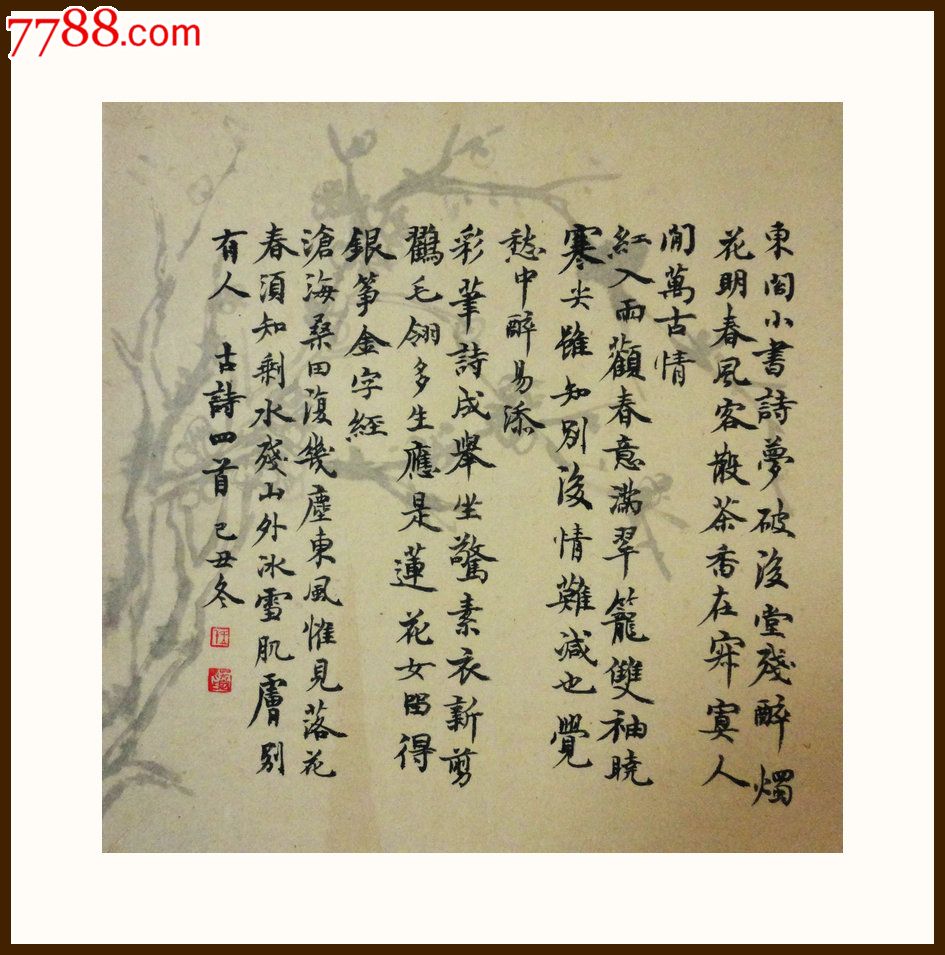 7788.com
東閣小書詩夢破後堂殘醉燭
花明春風客散茶香在寂寞人
間萬古情
紅入兩顴春意滿翠籠雙袖曉
寒尖雖知別後情難減也覺
愁中醉易添
彩筆詩成舉坐驚素衣新剪
鸛毛翎多生應是蓮花女留得
銀箏金字經
滄海桑田復幾塵東風惟見落花
春須知剩水殘山外冰雪肌膚別
有人
古詩四首 己丑冬